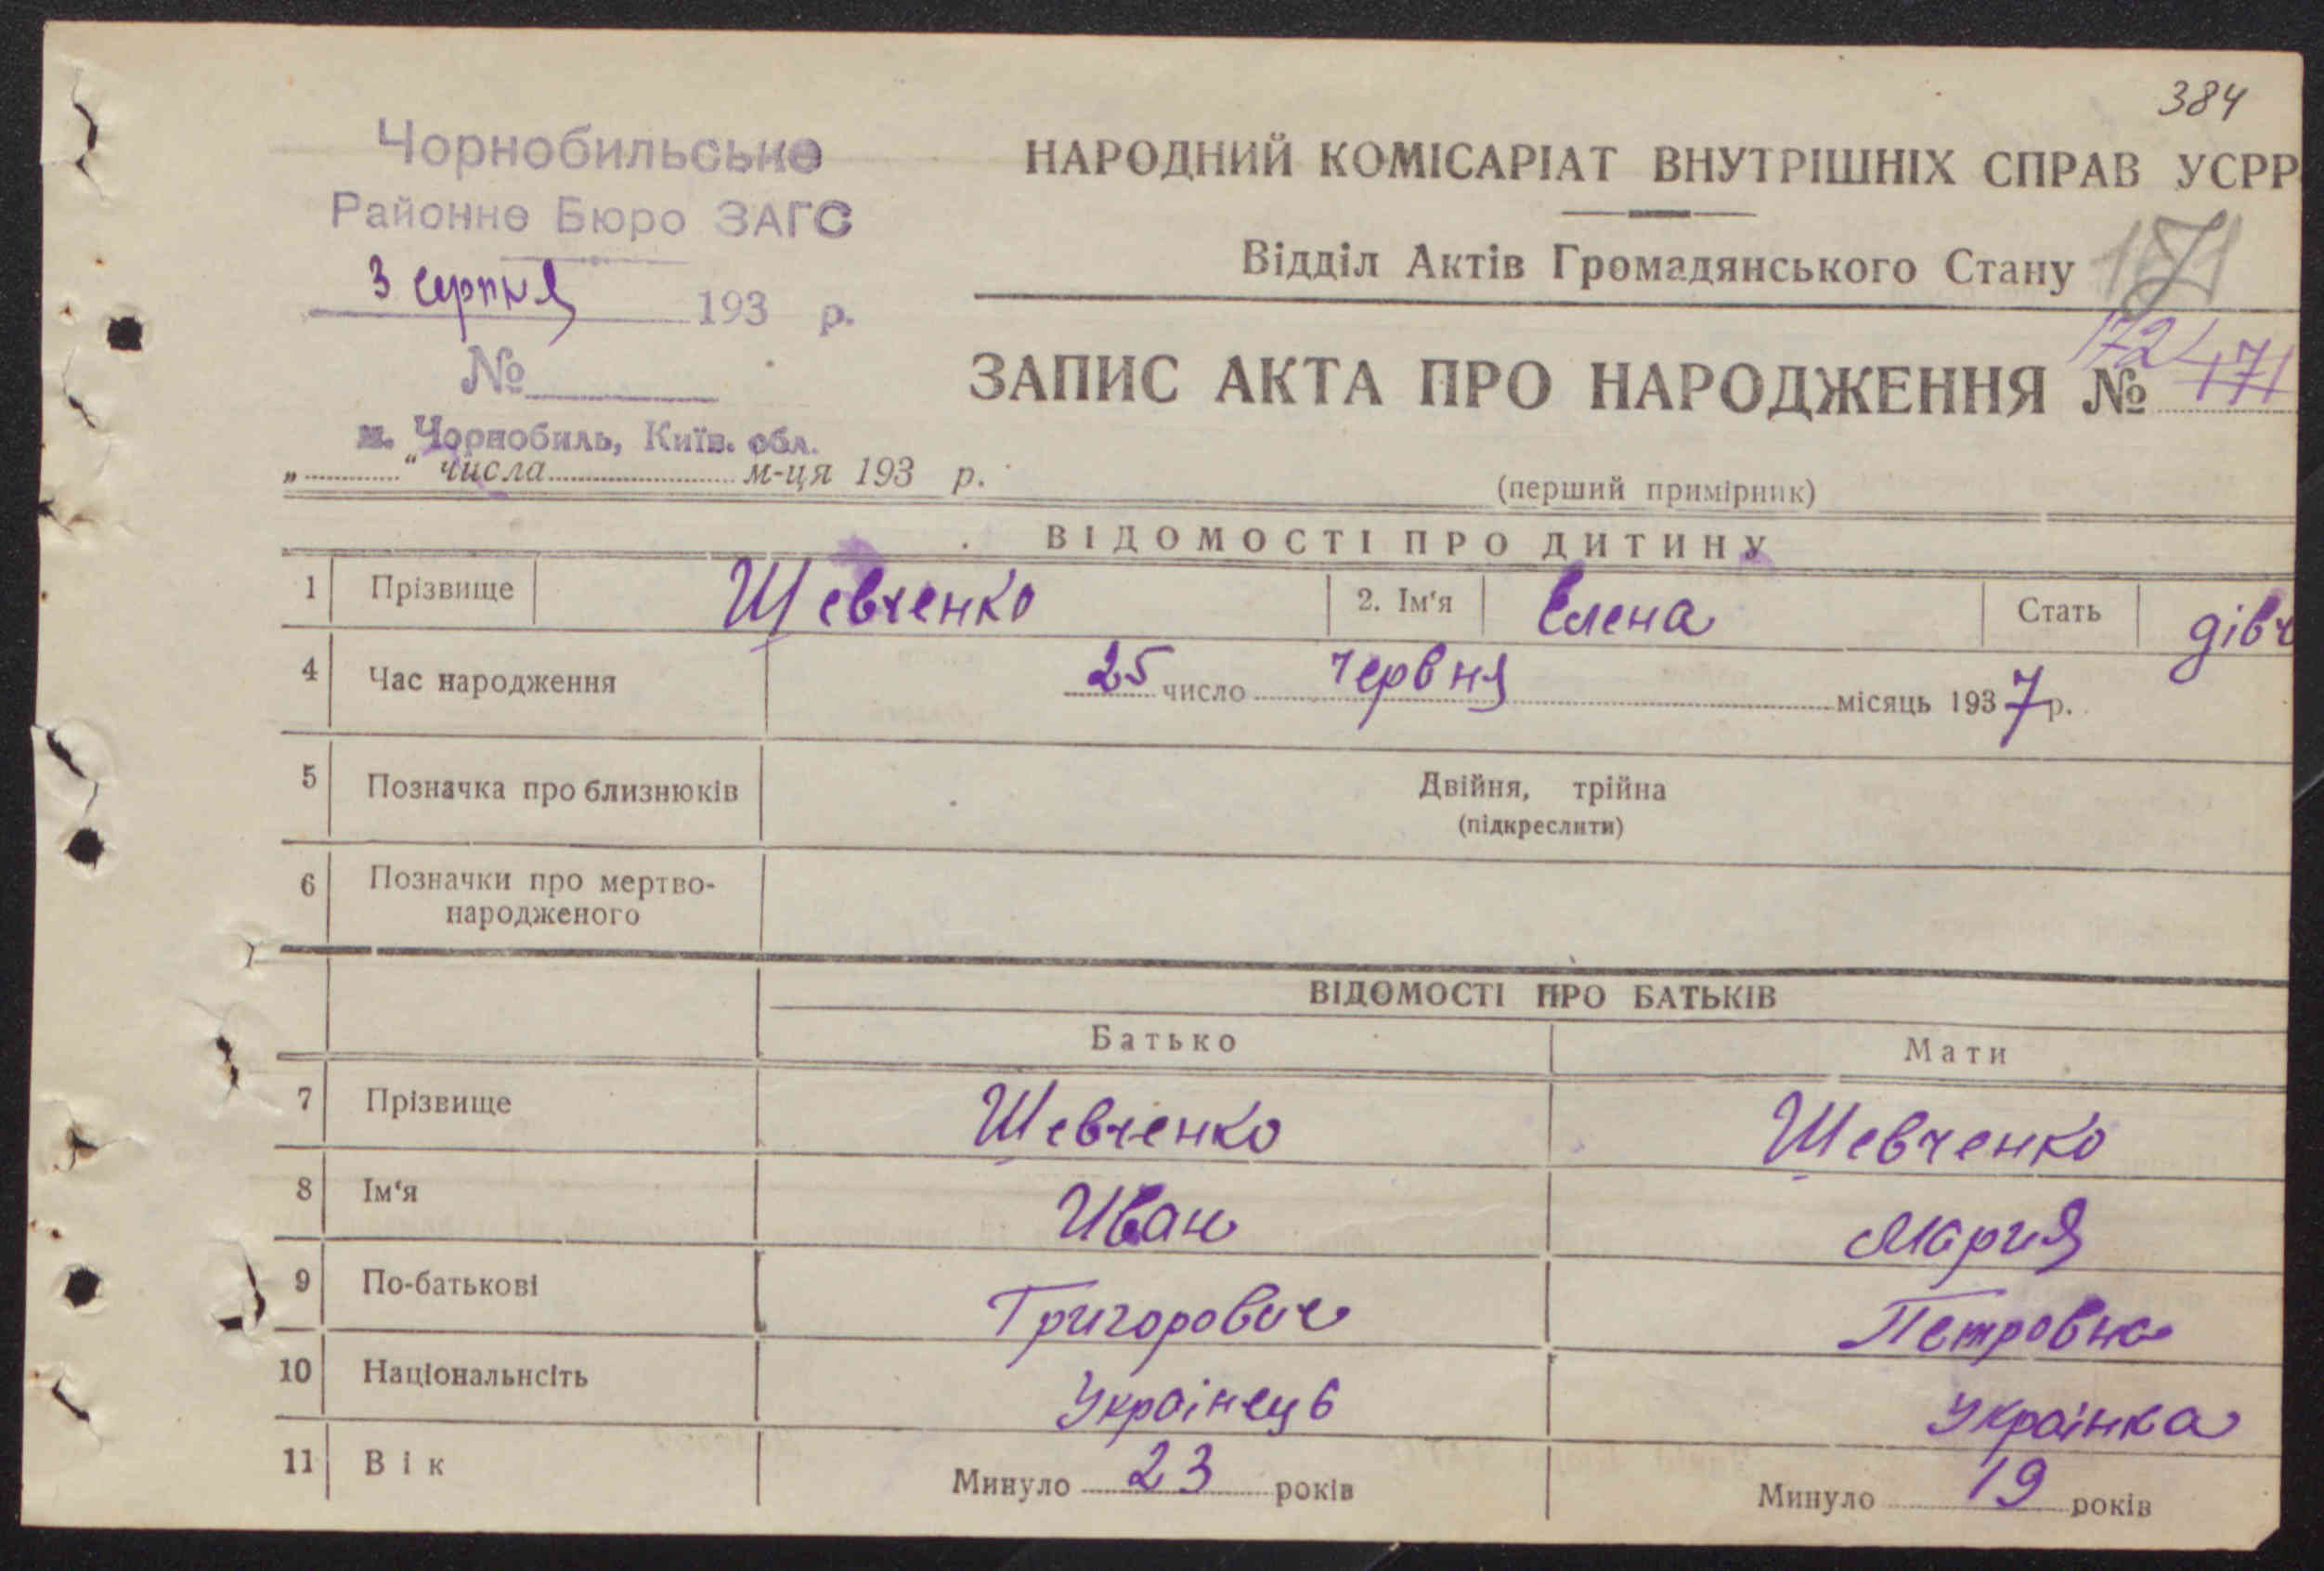 384
Чорнобильське
Районне Бюро ЗАГС
3 серпня 193 р.
№
м. Чорнобиль, Київ. обл.
„ “ числа м-ця 193 р.
НАРОДНИЙ КОМІСАРІАТ ВНУТРІШНІХ СПРАВ УСРР
Відділ Актів Громадянського Стану
171
172
ЗАПИС АКТА ПРО НАРОДЖЕННЯ № 471
(перший примірник)
ВІДОМОСТІ ПРО ДИТИНУ
1 Прізвище Шевченко 2. Ім‘я Елена Стать дівч
4 Час народження 25 число червня місяць 1937 р.
5 Позначка про близнюків Двійня, трійна
(підкреслити)
6 Позначки про мертво-
народженого
ВІДОМОСТІ ПРО БАТЬКІВ
Батько Мати
7 Прізвище Шевченко Шевченко
8 Ім‘я Иван Мария
9 По-батькові Григорович Петровна
10 Національнсіть Українець Українка
11 Вік Минуло 23 років Минуло 19 років